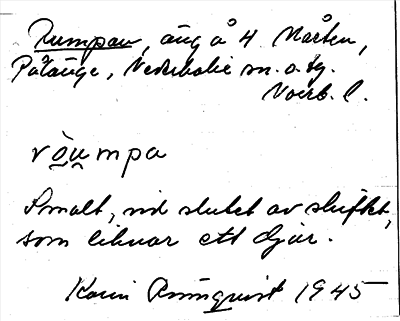 Rumpan, äng å 4 Mården,
Påtånge, Vederbobie sn. o. tg.
Norrb. l.
ròu̯mpa
Smalt, vid slutet av skiftet,
som liknar ett djur.
Karin Runnquist 1945